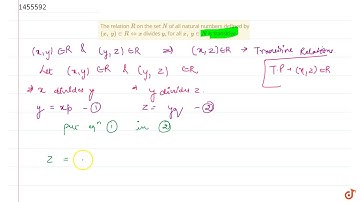 1455592
The relation R on the set N of all natural numbers defined by
(x, y) ∈ R ⇔ x divides y, for all x, y ∈
(x,y) ∈R & (y, z) ∈R ⇒ (x,z)∈R → Transitive Relation.
Let (x,y) ∈R & (y, z) ∈R.
T.P → (x,z) ∈R
⇒ x divides y & y divides z.
y = xp - ① z = yq - ②
put eqⁿ ① in ②
z = (